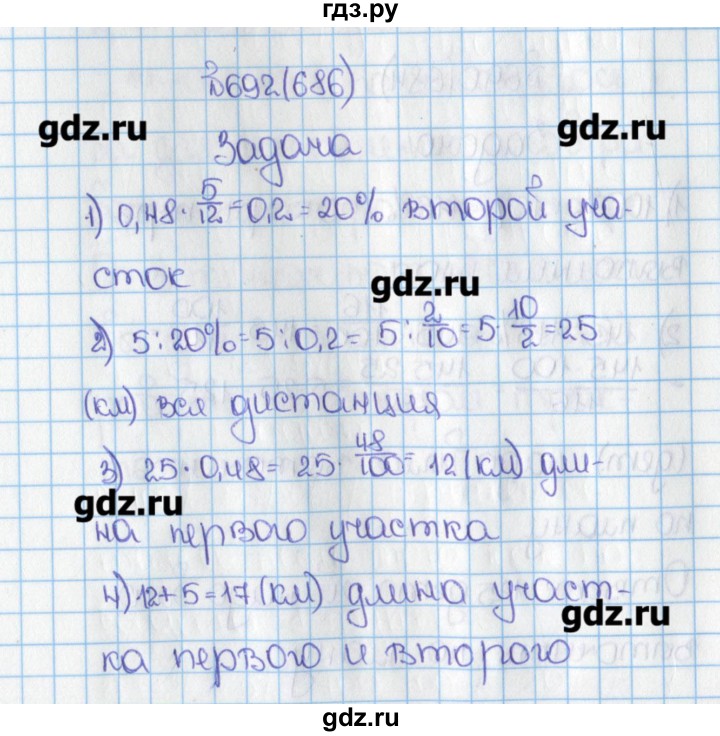 гдз.ру
№692(686)
gdz.ru
gdz.ru
Задача
1) 0,48 · 5/12 = 0,2 = 20% второй уча-
сток
gdz.ru
2) 5 : 20% = 5 : 0,2 = 5 : 2/10 = 5 · 10/2 = 25
(км) вся дистанция
3) 25 · 0,48 = 25 · 48/100 = 12 (км) дли-
gdz.ru
на первого участка
4) 12 + 5 = 17 (км) длина участ-
gdz.ru
ка первого и второго
gdz.ru